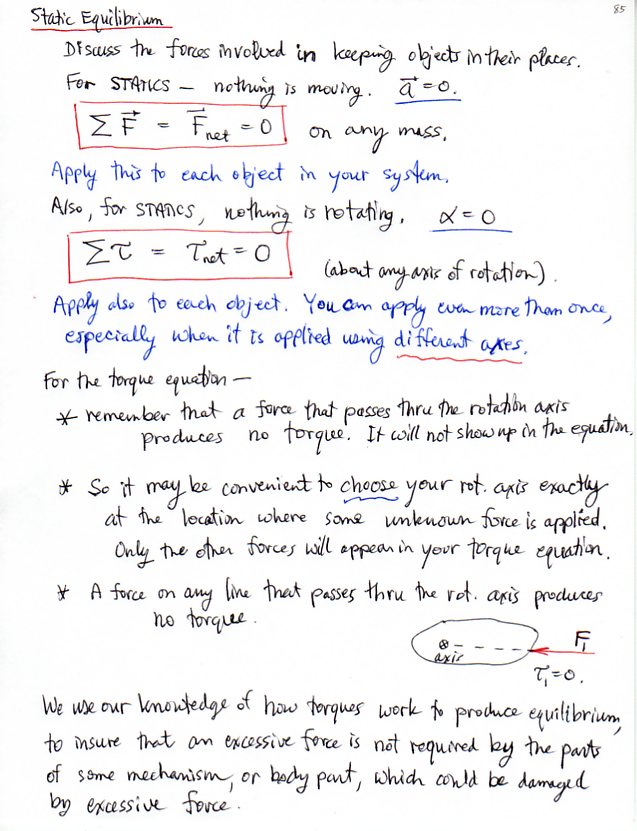 85
Static Equilibrium
Discuss the forces involved in keeping objects in their places.
For STATICS — nothing is moving. a⃗ = 0.
Σ F⃗ = F⃗net = 0 on any mass.
Apply this to each object in your system.
Also, for STATICS, nothing is rotating. α = 0
Στ = τnet = 0 (about any axis of rotation).
Apply also to each object. You can apply even more than once,
especially when it is applied using different axes.
For the torque equation —
* remember that a force that passes thru the rotation axis
produces no torque. It will not show up in the equation.
* So it may be convenient to choose your rot. axis exactly
at the location where some unknown force is applied.
Only the other forces will appear in your torque equation.
* A force on any line that passes thru the rot. axis produces
no torque.
F₁
axis
τ₁ = 0.
We use our knowledge of how torques work to produce equilibrium,
to insure that an excessive force is not required by the parts
of some mechanism, or body part, which could be damaged
by excessive force.